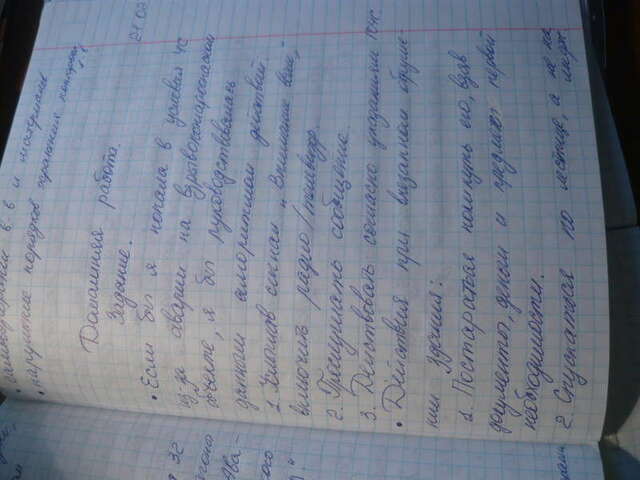 в в и
нарушение порядков хранения
21.02
Домашняя работа.
Задание.
• Если бы я попала в условия ЧС
из-за аварии на взрывопожароопасном
объекте, я бы руководствовалась
данным алгоритмом действий.
1. Услышав сигнал „Внимание всем",
включить радио/телевизор.
2. Прослушать сообщение.
3. Действовать согласно указаниям
• Действия при внезапном обруше-
нии здания:
1. Постараться покинуть его, взяв
документы, деньги и предметы первой
необходимости.
2. Спускаться по лестнице, а не на лифте.
32